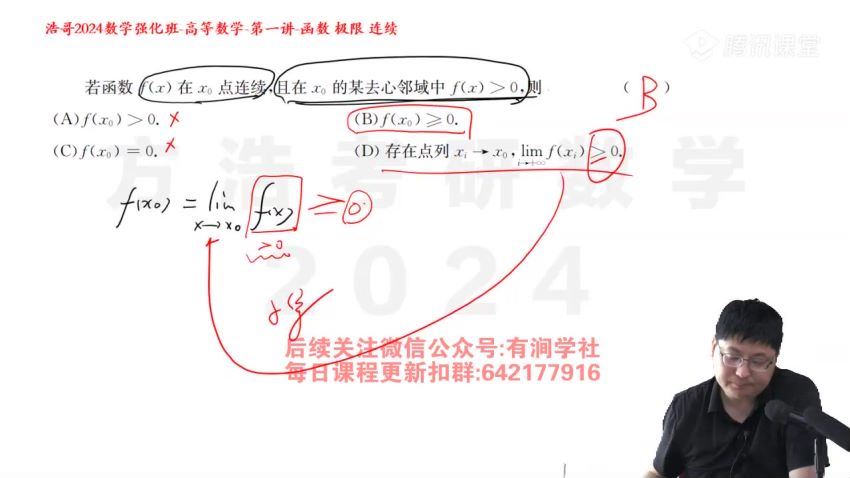 浩哥2024数学强化班-高等数学-第一讲-函数 极限 连续
腾讯课堂
若函数 f(x) 在 x₀ 点连续,且在 x₀ 的某去心邻域中 f(x) > 0,则 ( B )
(A) f(x₀) > 0. ×
(B) f(x₀) ≥ 0.
(C) f(x₀) = 0. ×
(D) 存在点列 xᵢ → x₀, lim i→+∞ f(xᵢ) ≥ 0.
方浩考研数学
f(x₀) = lim x→x₀ f(x) ≥ 0
>0
2024
后续关注微信公众号:有涧学社
每日课程更新扣群:642177916